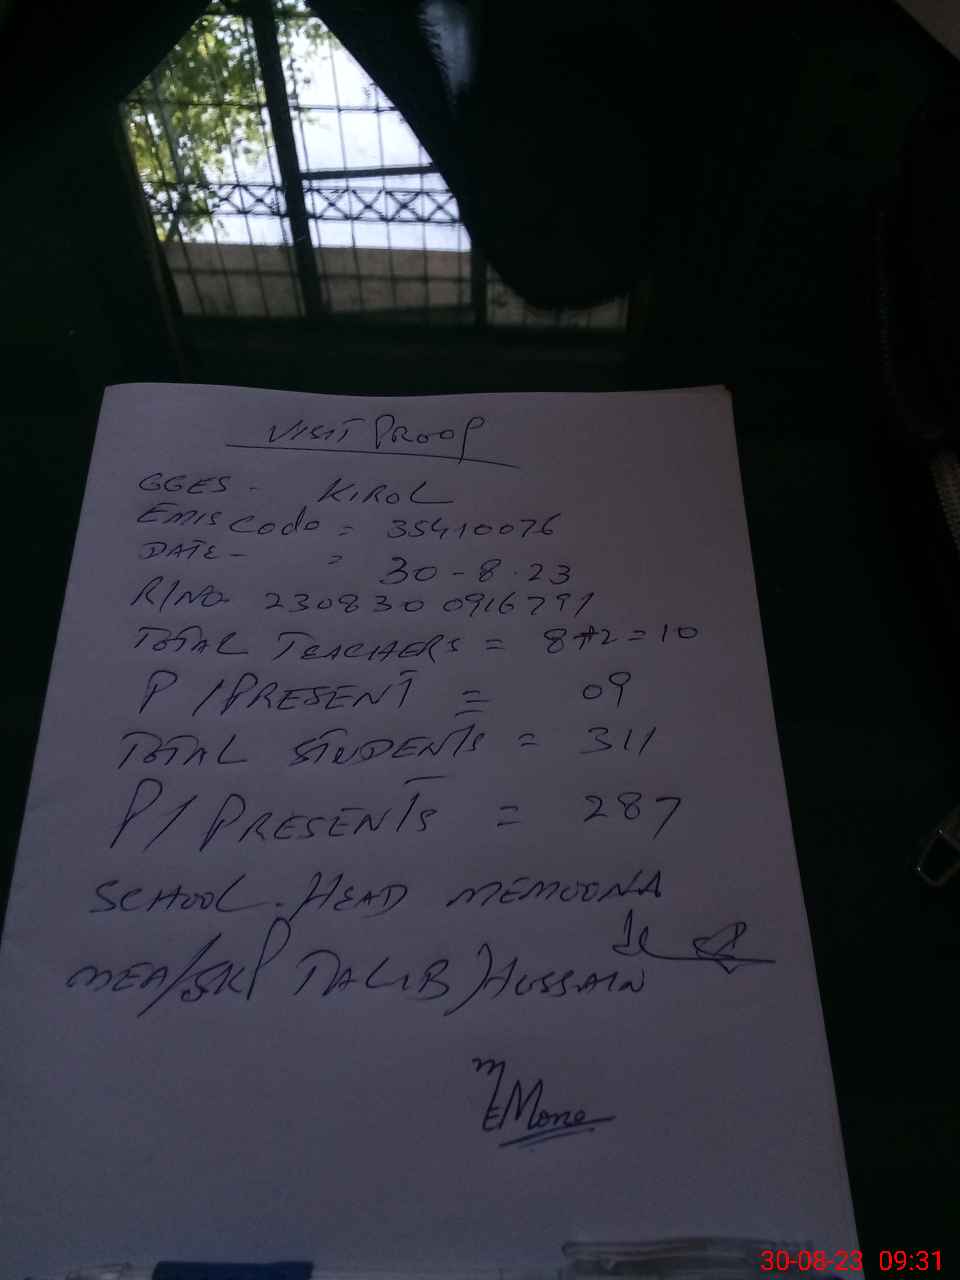 VISIT PROOF
GGES - KIROL
EMIS Code = 35410076
DATE - = 30-8.23
R/NO- 230830 0916791
TOTAL TEACHERS = 8+2=10
P/PRESENT = 09
TOTAL STUDENTS = 311
P/PRESENTS = 287
SCHOOL. HEAD MEMOONA
MEA/SKP TALIB HUSSAIN
30-08-23 09:31